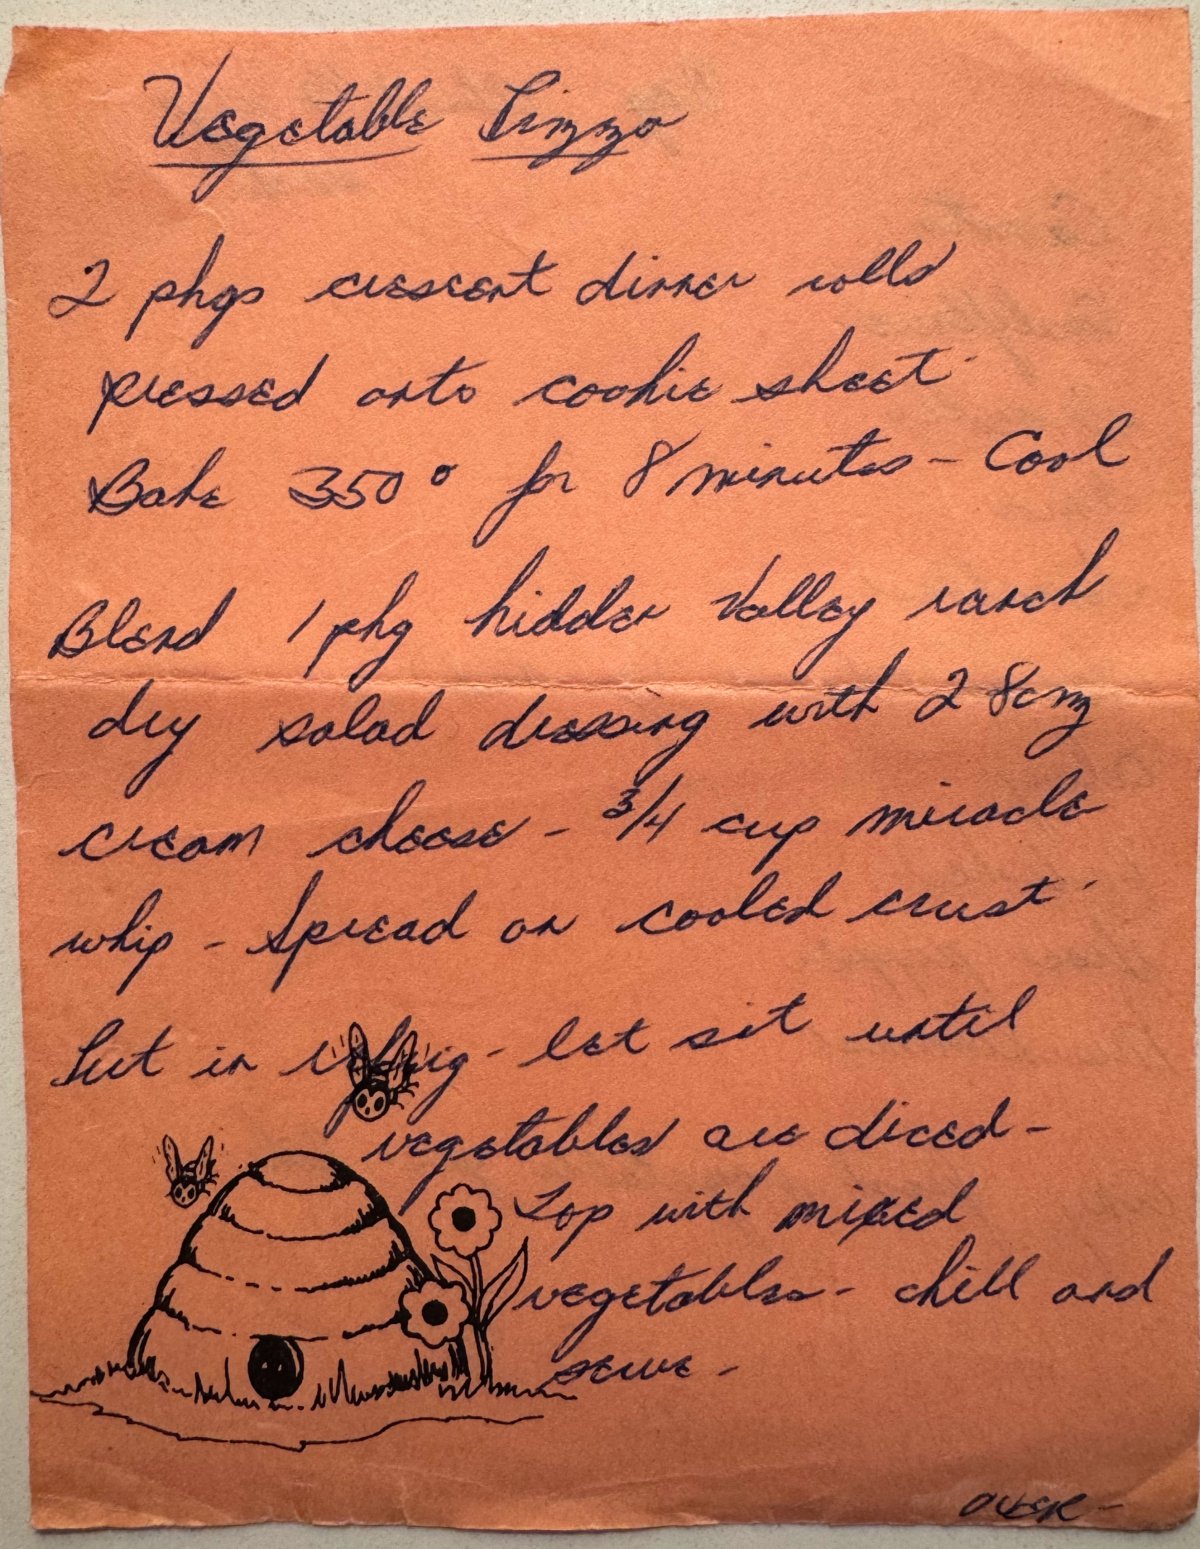 Vegetable Pizza
2 pkgs crescent dinner rolls
pressed onto cookie sheet.
Bake 350° for 8 minutes - Cool
Blend 1 pkg hidden Valley ranch
dry salad dressing with 2 8 oz
cream cheese - 3/4 cup miracle
whip - Spread on cooled crust.
Put in refrig - let sit until
vegetables are diced -
Top with mixed
vegetables - chill and
serve -
OVER -